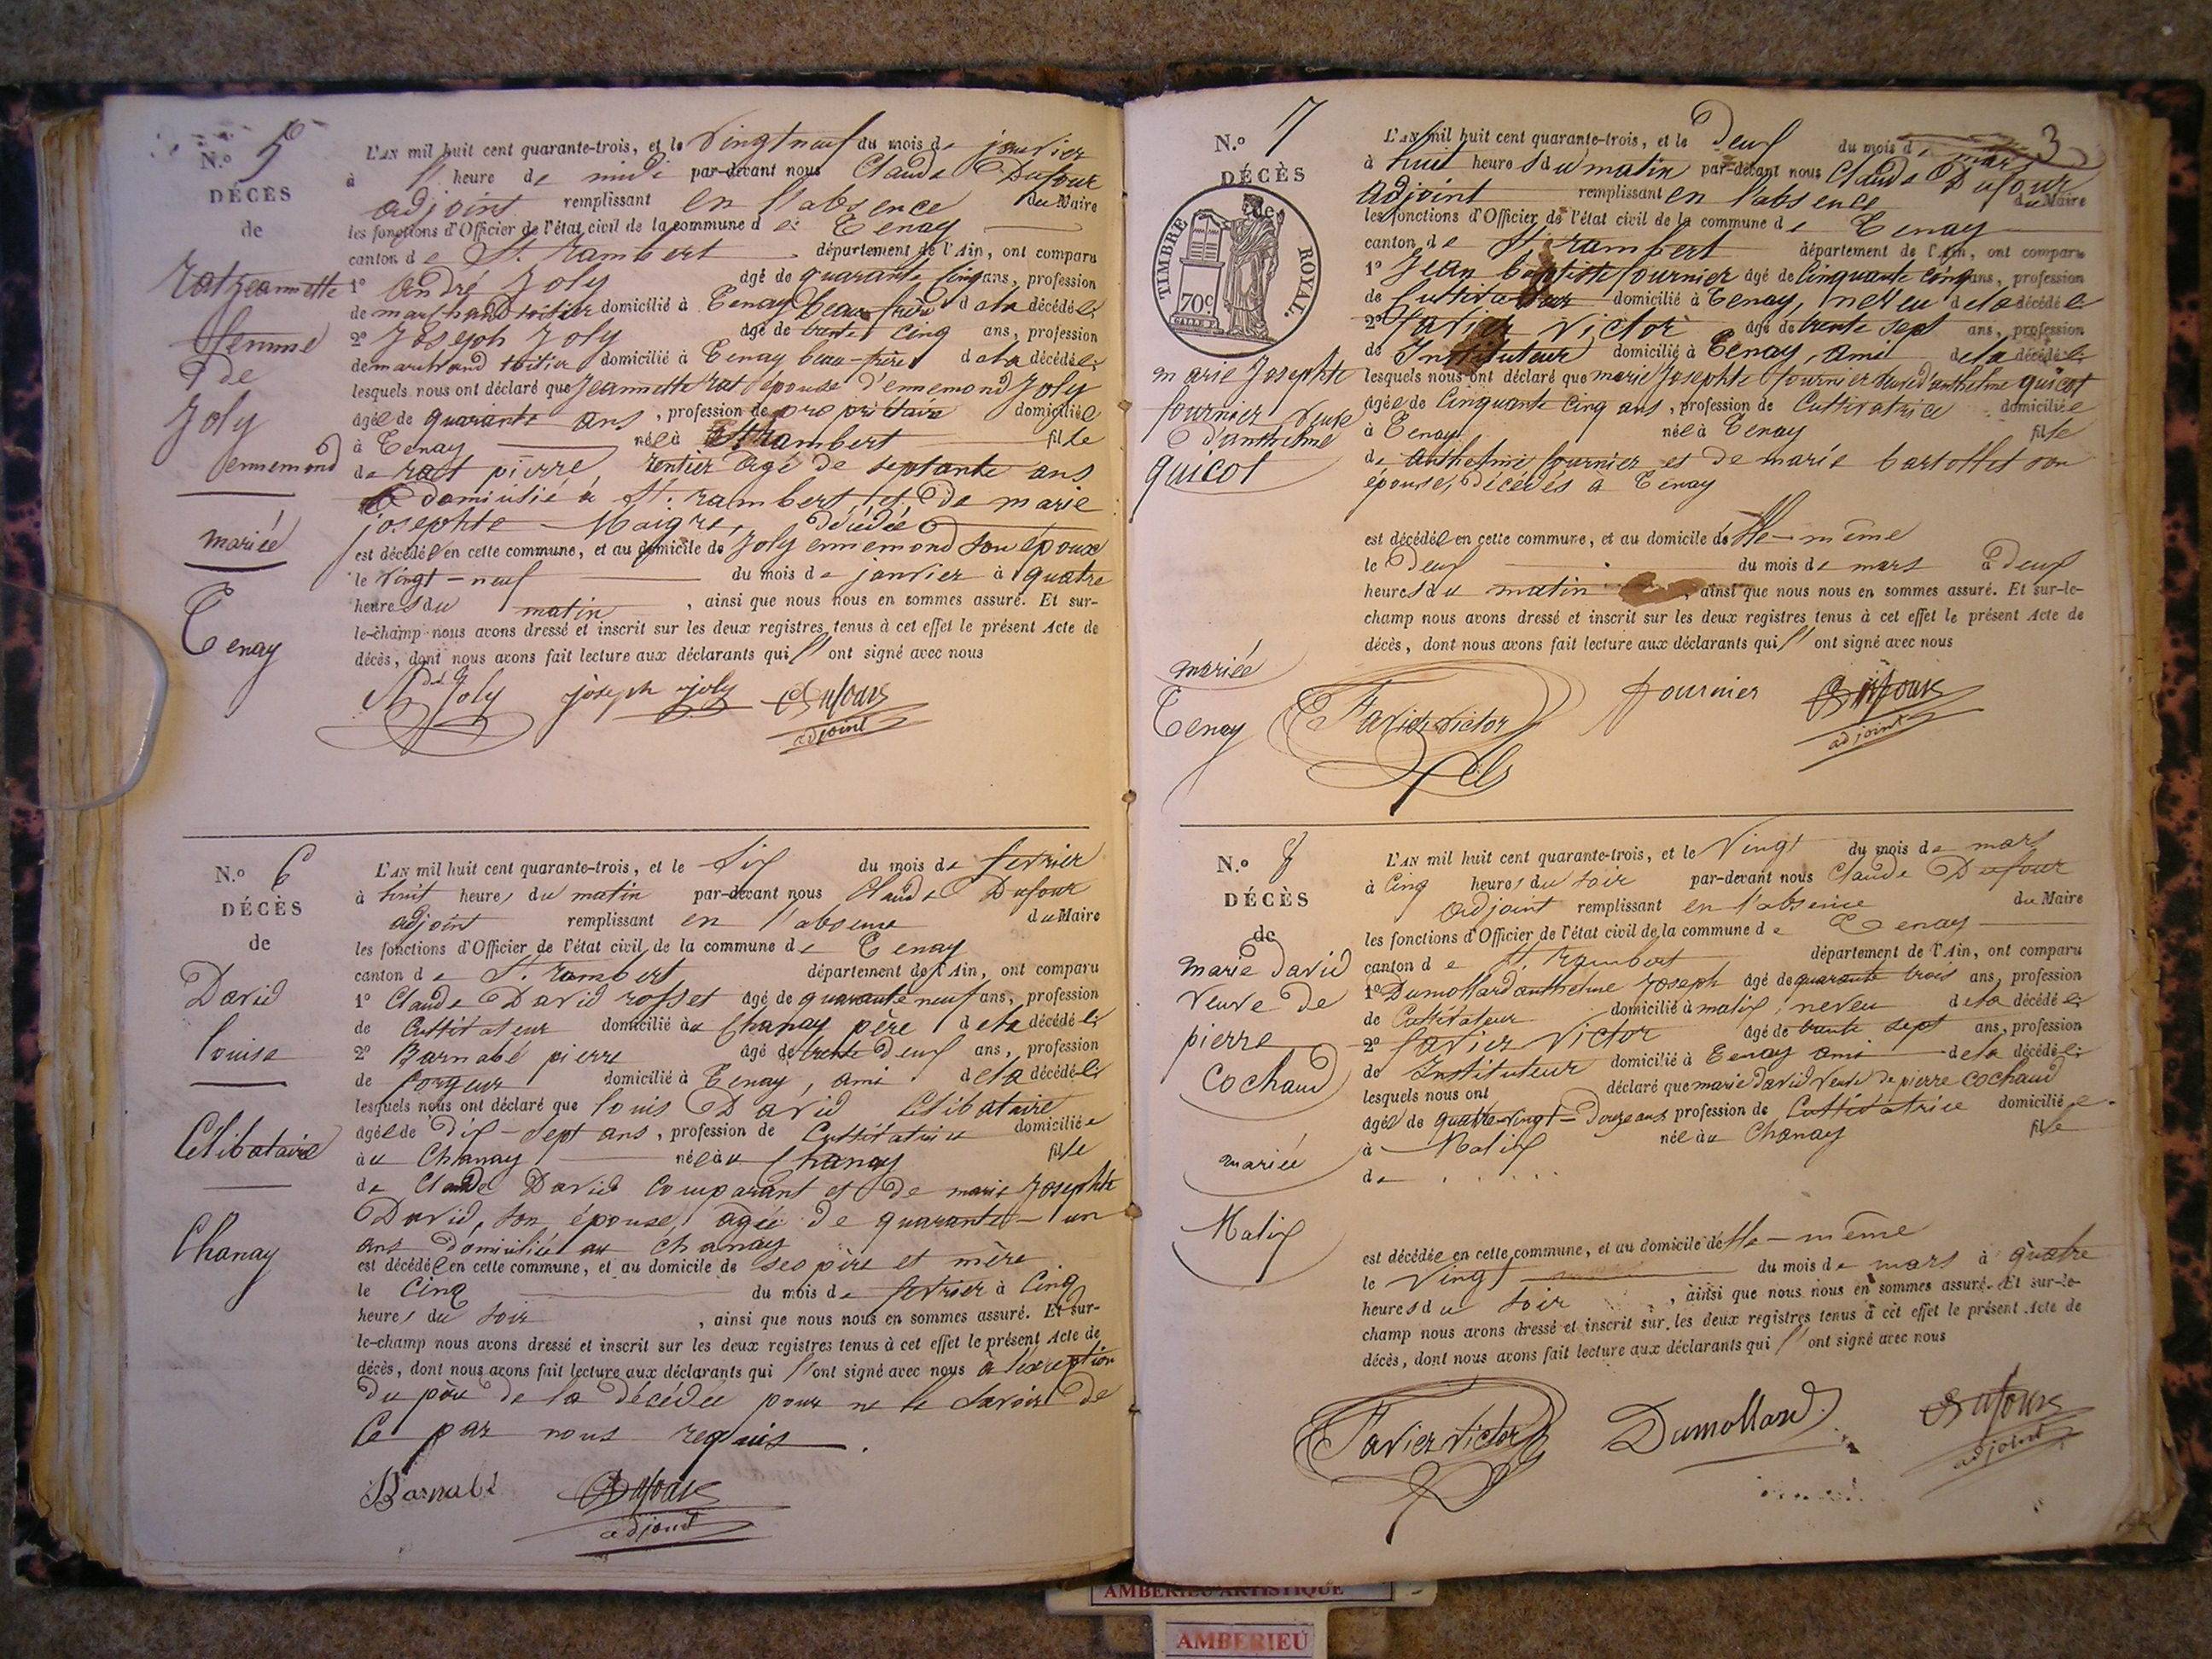 N.º 5
DÉCÈS
de
Rat Jeannette
femme
de
Joly
ennemond
mariée
Tenay
L'AN mil huit cent quarante-trois, et le Vingt neuf du mois de janvier
à l' heure de midi par-devant nous Claude Dufour
adjoint remplissant en l'absence du Maire
les fonctions d'Officier de l'état civil de la commune de Tenay
canton de St. Rambert département de l'Ain, ont comparu
1º André Joly âgé de quarante cinq ans, profession
de marchand toitier domicilié à Tenay beau-frère de la décédée
2º Joseph Joly âgé de trente cinq ans, profession
de marchand toitier domicilié à Tenay beau-frère de la décédée
lesquels nous ont déclaré que Jeannette Rat épouse d'ennemond Joly
âgée de quarante ans, profession de propriétaire domiciliée
à Tenay née à St. Rambert fille
de rat pierre rentier âgé de septante ans
domicilié à St. rambert, et de marie
josephte Maigre, décédée
est décédée en cette commune, et au domicile de Joly ennemond son époux
le vingt-neuf du mois de janvier à quatre
heures du matin, ainsi que nous nous en sommes assuré. Et sur-
le-champ nous avons dressé et inscrit sur les deux registres tenus à cet effet le présent Acte de
décès, dont nous avons fait lecture aux déclarants qui l'ont signé avec nous
Joly joseph joly Dufour
adjoint
N.º 6
DÉCÈS
de
David
louise
Célibataire
Chanay
L'AN mil huit cent quarante-trois, et le Six du mois de fevrier
à huit heures du matin par-devant nous Claude Dufour
adjoint remplissant en l'absence du Maire
les fonctions d'Officier de l'état civil de la commune de Tenay
canton de St. rambert département de l'Ain, ont comparu
1º Claude David rosset âgé de quarante neuf ans, profession
de Cultivateur domicilié au Chanay père de la décédée
2º Barnabé pierre âgé de trente deux ans, profession
de forgeur domicilié à Tenay, ami de la décédée
lesquels nous ont déclaré que louis David Célibataire
âgée de dix-sept ans, profession de Cultivatrice domiciliée
au Chanay née au Chanay fille
de Claude David Comparant et de marie Josephte
David, son épouse, âgée de quarante-un
ans domiciliée au Chanay
est décédée en cette commune, et au domicile de ses père et mère
le Cinq du mois de fevrier à Cinq
heures du soir, ainsi que nous nous en sommes assuré. Et sur-
le-champ nous avons dressé et inscrit sur les deux registres tenus à cet effet le présent Acte de
décès, dont nous avons fait lecture aux déclarants qui l'ont signé avec nous à l'exception
du père de la décédée pour ne le savoir de
Ce par nous requis.
Barnabé Dufour
adjoint
3
N.º 7
DÉCÈS
de
TIMBRE ROYAL.
70c
marie Josephte
fournier veuve
d'anthelme
quicot
mariée
Tenay
L'AN mil huit cent quarante-trois, et le Deux du mois de mars
à huit heures du matin par-devant nous Claude Dufour
adjoint remplissant en l'absence du Maire
les fonctions d'Officier de l'état civil de la commune de Tenay
canton de St. rambert département de l'Ain, ont comparu
1º Jean baptiste fournier âgé de Cinquante cinq ans, profession
de Cultivateur domicilié à Tenay, neveu de la décédée
2º Favier Victor âgé de trente sept ans, profession
de Instituteur domicilié à Tenay, ami de la décédée
lesquels nous ont déclaré que marie Josephte fournier veuve d'anthelme quicot
âgée de Cinquante Cinq ans, profession de Cultivatrice domiciliée
à Tenay née à Tenay fille
de anthelme fournier et de marie bartollet son
épouse, décédés à Tenay
est décédée en cette commune, et au domicile d'elle-même
le Deux du mois de mars à deux
heures du matin ainsi que nous nous en sommes assuré. Et sur-le-
champ nous avons dressé et inscrit sur les deux registres tenus à cet effet le présent Acte de
décès, dont nous avons fait lecture aux déclarants qui l'ont signé avec nous
Favier Victor fournier Dufour
adjoint
N.º 8
DÉCÈS
de
marie David
veuve de
pierre
Cochaud
mariée
Malix
L'AN mil huit cent quarante-trois, et le Vingt du mois de mars
à Cinq heures du soir par-devant nous Claude Dufour
adjoint remplissant en l'absence du Maire
les fonctions d'Officier de l'état civil de la commune de Tenay
canton de St. Rambert département de l'Ain, ont comparu
1º Dumollard anthelme Joseph âgé de quarante trois ans, profession
de Cultivateur domicilié à malix, neveu de la décédée
2º favier Victor âgé de trente sept ans, profession
de Instituteur domicilié à Tenay ami de la décédée
lesquels nous ont déclaré que marie david veuve de pierre Cochaud
âgée de quatre-vingt-douze ans profession de Cultivatrice domiciliée
à Malix née au Chanay fille
de
est décédée en cette commune, et au domicile d'elle-même
le Vingt du mois de mars à quatre
heures du soir, ainsi que nous nous en sommes assuré. Et sur-le-
champ nous avons dressé et inscrit sur les deux registres tenus à cet effet le présent Acte de
décès, dont nous avons fait lecture aux déclarants qui l'ont signé avec nous
Favier Victor Dumollard Dufour
adjoint
AMBERIEU ARTISTIQUE
AMBERIEU